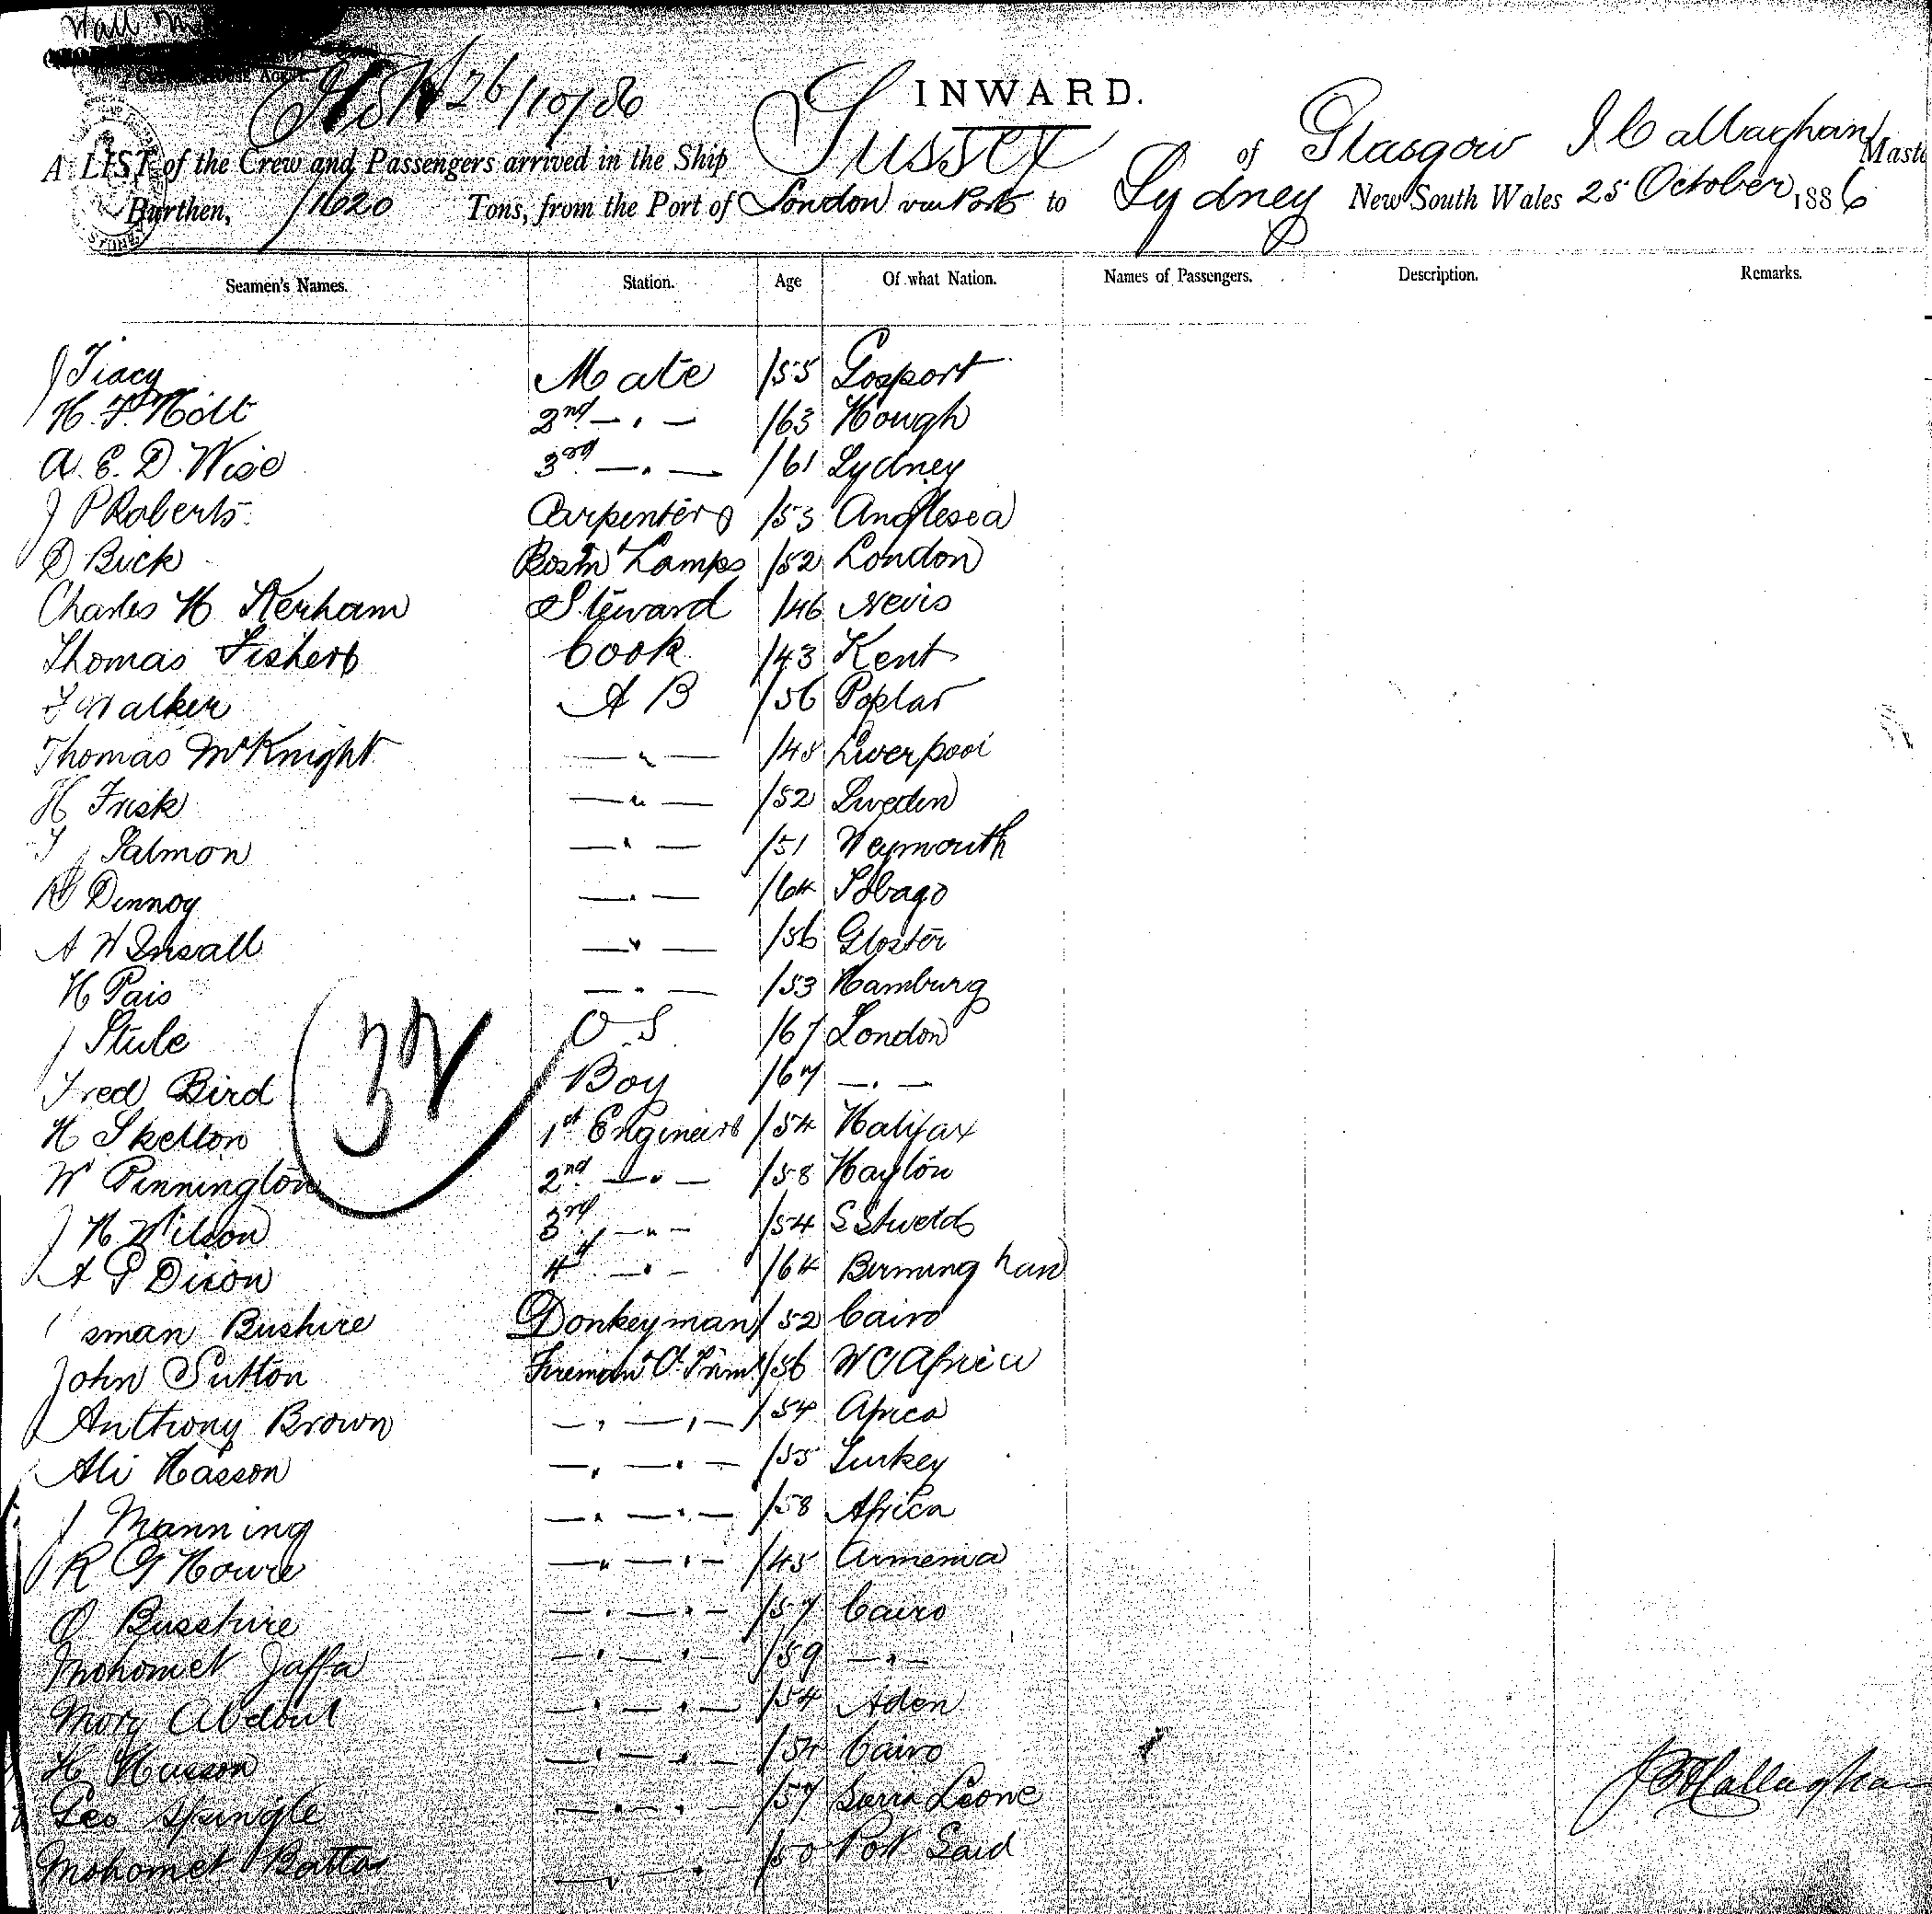 INWARD.
26/10/86
A LIST of the Crew and Passengers arrived in the Ship Sussex of Glasgow J Callaghan Maste
Burthen, 1620 Tons, from the Port of London via Ports to Sydney New South Wales 25 October 1886
Seamen's Names. Station. Age Of what Nation. Names of Passengers. Description. Remarks.
J Tracy Mate /55 Gosport
H. F. Holt 2nd — " — /63 Hough
A. E. D. Wise 3rd — " — /61 Sydney
J P Roberts Carpenter /53 Anglesea
D Bick Bosn & Lamps /52 London
Charles H Kerham Steward /46 Nevis
Thomas Fisher Cook /43 Kent
Walker A B /56 Poplar
Thomas McKnight — " — /48 Liverpool
H Frisk — " — /52 Sweden
Salmon — " — /51 Weymouth
Dennoy — " — /64 Tobago
A W Insall — " — /56 Gloster
H Pais — " — /53 Hamburg
J Stule O S /67 London
Fred Bird Boy /67 — " —
32
H Skelton 1st Engineer /54 Halifax
W Pinnington 2nd — " — /58 Haylon
J H Wilson 3rd — " — /54
A P Dixon 4 — " — /64 Birmingham
sman Bushire Donkeyman /52 Cairo
John Sutton Fireman & Cl Trimr /56 W C Africa
Anthony Brown — " — " — /54 Africa
Ali Hasson — " — " — /55 Turkey
J Manning — " — " — /58 Africa
R G Howre — " — " — /45 Armenia
O Busshire — " — " — /57 Cairo
Mohomet Jaffa — " — " — /59 — " —
Mory Abdoul — " — " — /54 Aden
H Husson — " — " — /54 Cairo
Geo Spingle — " — " — /57 Sierra Leone
Mohomet Batta — " — " /50 Port Said
J Callaghan